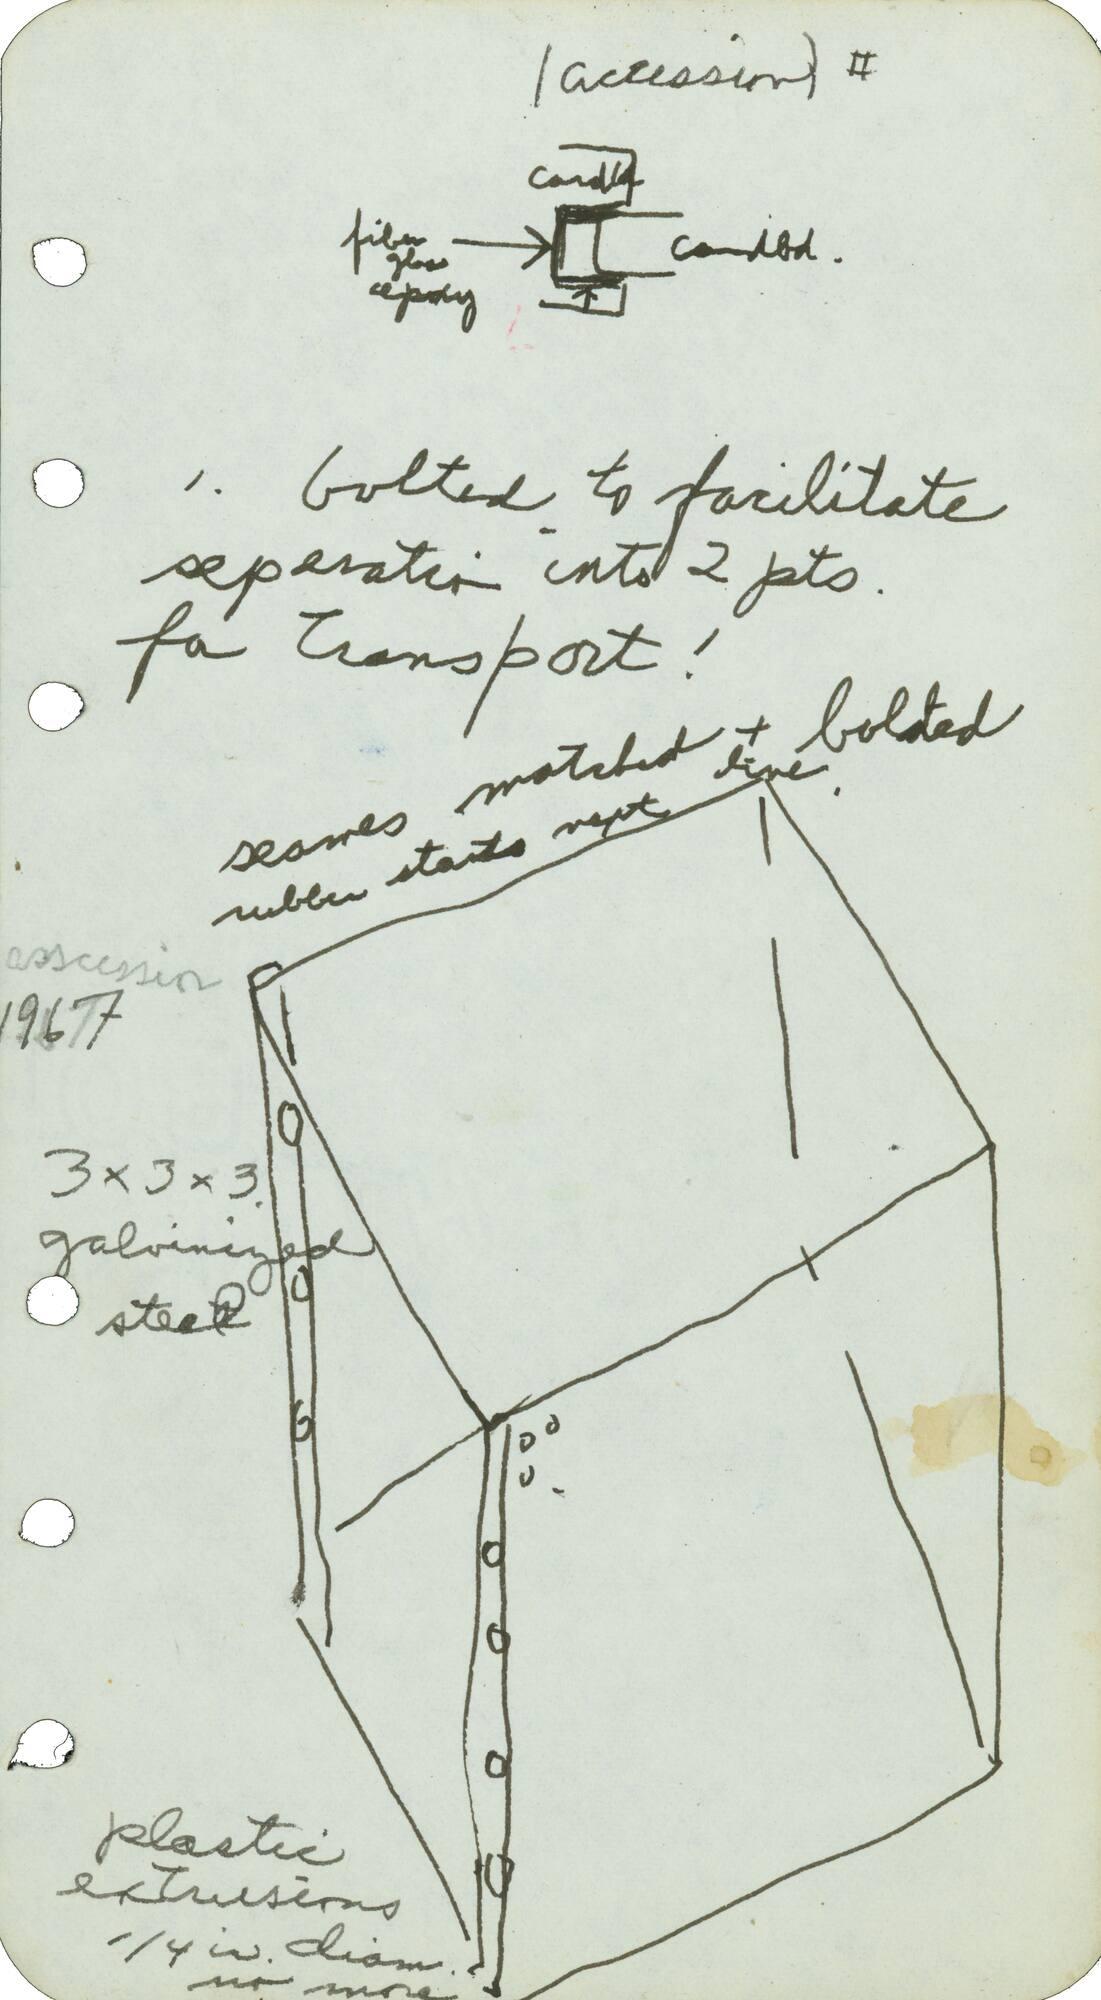 (accession) #
cardbd
fiber
glass
epoxy
cardbd.
1. bolted to facilitate
separation into 2 pts.
for Transport!
seames matched + bolted
rubber starts next line.
asscession
1967
3 x 3 x 3.
galvinized
steel
plastic
extrusions
1/4 in. diam.
no more